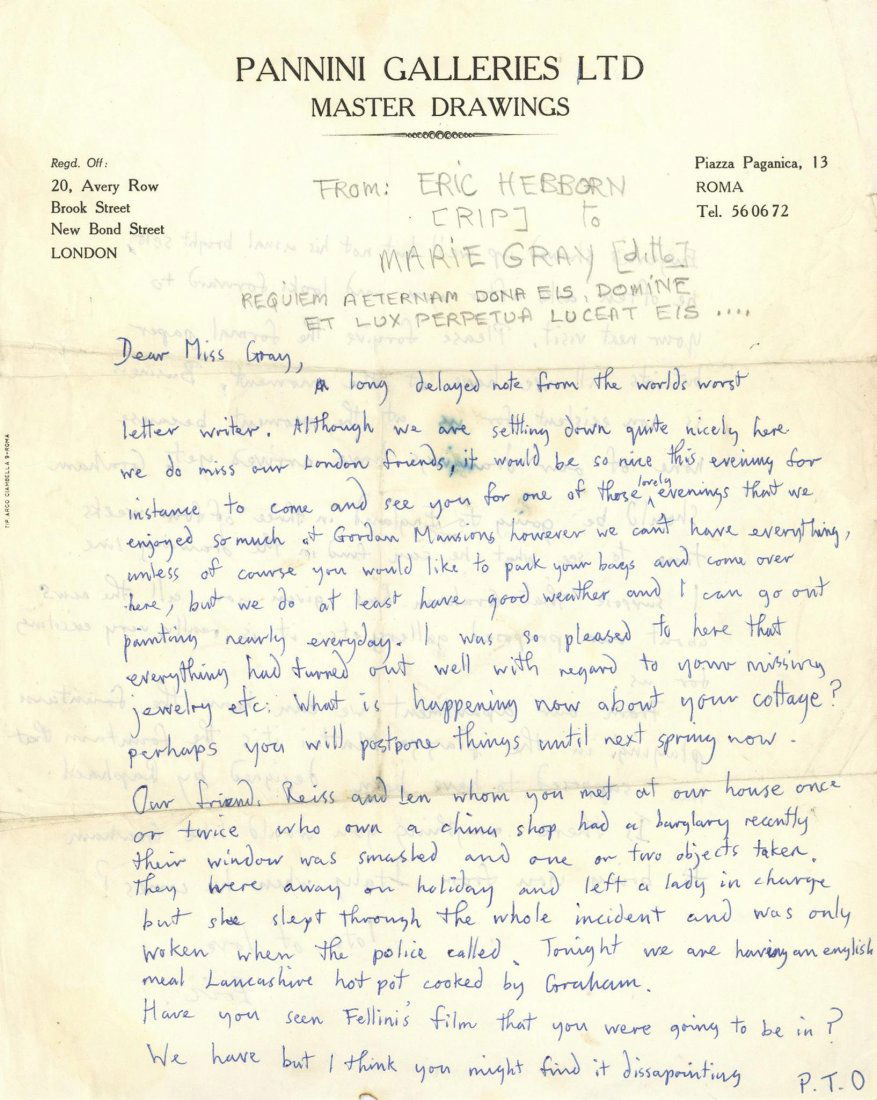 PANNINI GALLERIES LTD
MASTER DRAWINGS
Regd. Off:
20, Avery Row
Brook Street
New Bond Street
LONDON
Piazza Paganica, 13
ROMA
Tel. 560672
FROM: ERIC HEBBORN
[RIP] to
MARIE GRAY [ditto]
REQUIEM AETERNAM DONA EIS, DOMINE
ET LUX PERPETUA LUCEAT EIS ....
TIP. ARGO CIAMBELLA 9-ROMA
Dear Miss Gray,
A long delayed note from the worlds worst
letter writer. Although we are settling down quite nicely here
we do miss our London friends, it would be so nice this evening for
instance to come and see you for one of those lovely evenings that we
enjoyed so much at Gordon Mansions however we can't have everything,
unless of course you would like to pack your bags and come over
here, but we do at least have good weather and I can go out
painting nearly everyday. I was so pleased to here that
everything had turned out well with regard to your missing
jewelry etc. What is happening now about your cottage?
perhaps you will postpone things until next spring now.
Our friends Reiss and Len whom you met at our house once
or twice who own a china shop had a burglary recently
their window was smashed and one or two objects taken.
they were away on holiday and left a lady in charge
but she slept through the whole incident and was only
woken when the police called. Tonight we are having an english
meal Lancashire hot pot cooked by Graham.
Have you seen Fellini's film that you were going to be in?
We have but I think you might find it dissapointing
P.T.O